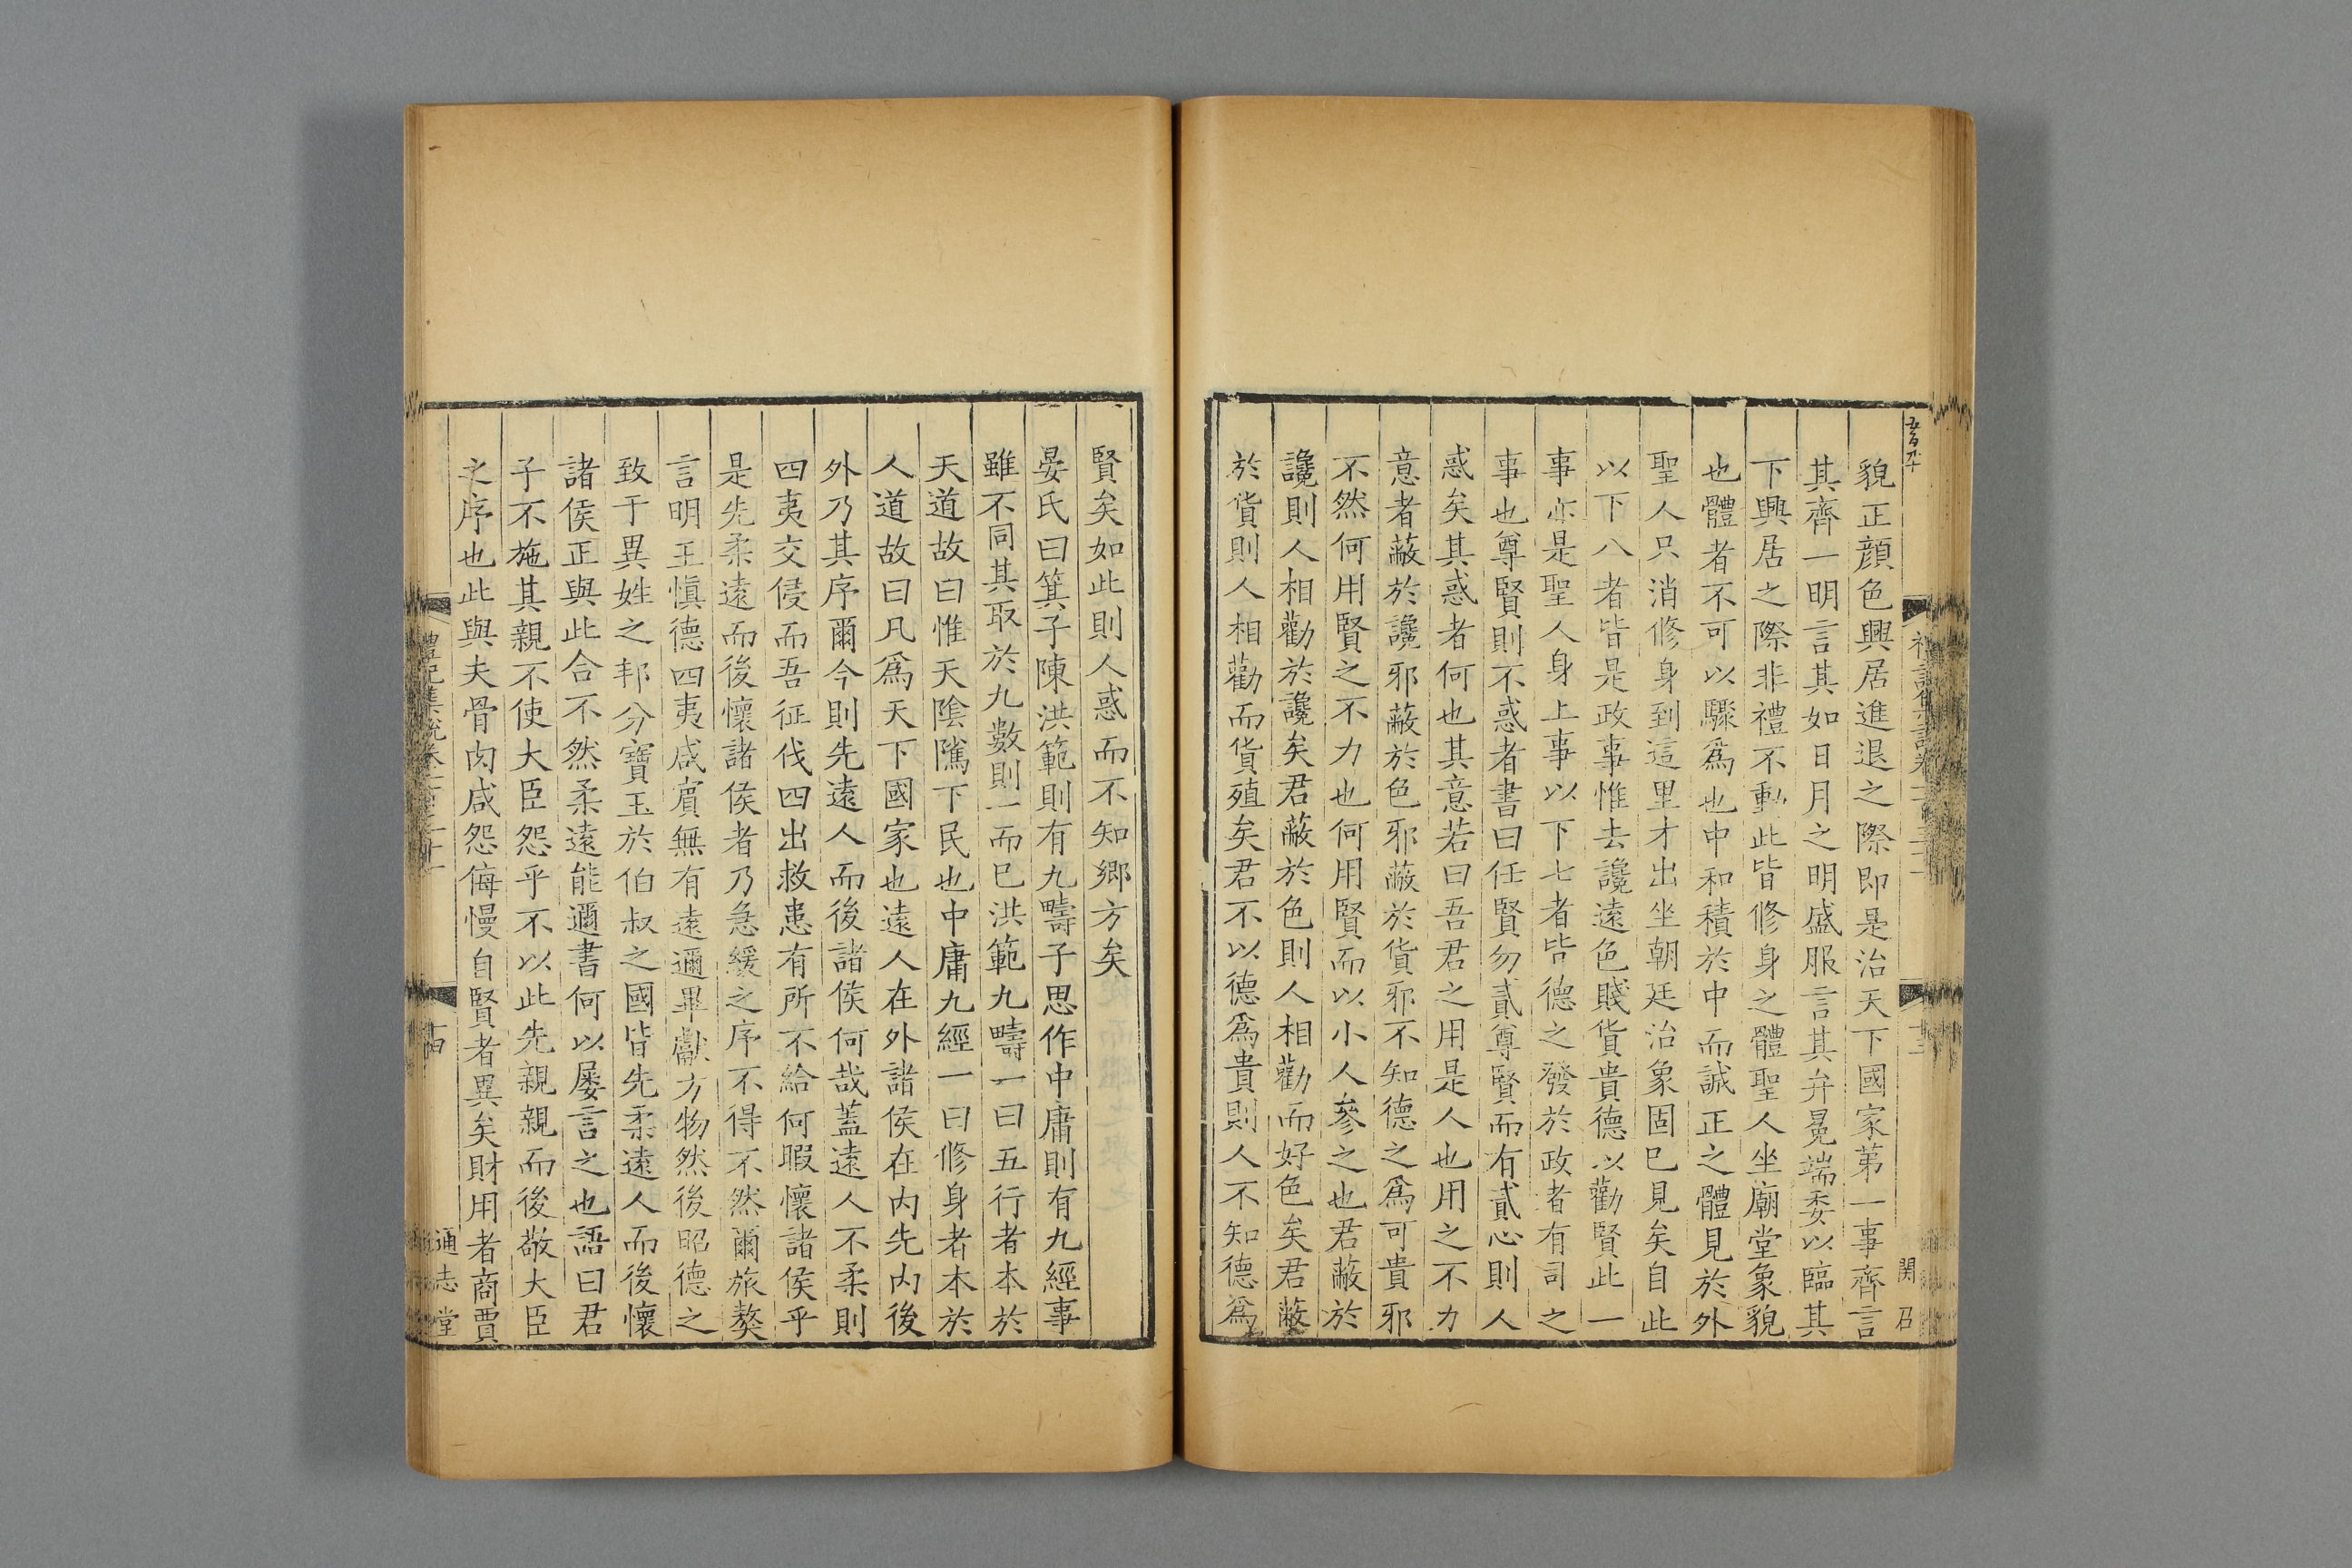 貌正顔色興居進退之際即是治天下國家第一事齊言
其齊一明言其如日月之明盛服言其弁冕端委以臨其
下興居之際非禮不動此皆修身之體聖人坐廟堂象貌
也體者不可以驟爲也中和積於中而誠正之體見於外
聖人只消修身到這里才出坐朝廷治象固已見矣自此
以下八者皆是政事惟去讒遠色賤貨貴德以勸賢此一
事亦是聖人身上事以下七者皆德之發於政者有司之
事也尊賢則不惑者書曰任賢勿貳尊賢而有貳心則人
惑矣其惑者何也其意若曰吾君之用是人也用之不力
意者蔽於讒邪蔽於色邪蔽於貨邪不知德之爲可貴邪
不然何用賢之不力也何用賢而以小人參之也君蔽於
讒則人相勸於讒矣君蔽於色則人相勸而好色矣君蔽
於貨則人相勸而貨殖矣君不以德爲貴則人不知德爲
賢矣如此則人惑而不知鄉方矣
晏氏曰箕子陳洪範則有九疇子思作中庸則有九經事
雖不同其取於九數則一而已洪範九疇一曰五行者本於
天道故曰惟天陰隲下民也中庸九經一曰修身者本於
人道故曰凡爲天下國家也遠人在外諸侯在内先内後
外乃其序爾今則先遠人而後諸侯何哉蓋遠人不柔則
四夷交侵而吾征伐四出救患有所不給何暇懷諸侯乎
是先柔遠而後懷諸侯者乃急緩之序不得不然爾旅獒
言明王愼德四夷咸賓無有遠邇畢獻方物然後昭德之
致于異姓之邦分寶玉於伯叔之國皆先柔遠人而後懷
諸侯正與此合不然柔遠能邇書何以屡言之也語曰君
子不施其親不使大臣怨乎不以此先親親而後敬大臣
之序也此與夫骨肉咸怨侮慢自賢者異矣財用者商賈
十四
通志堂